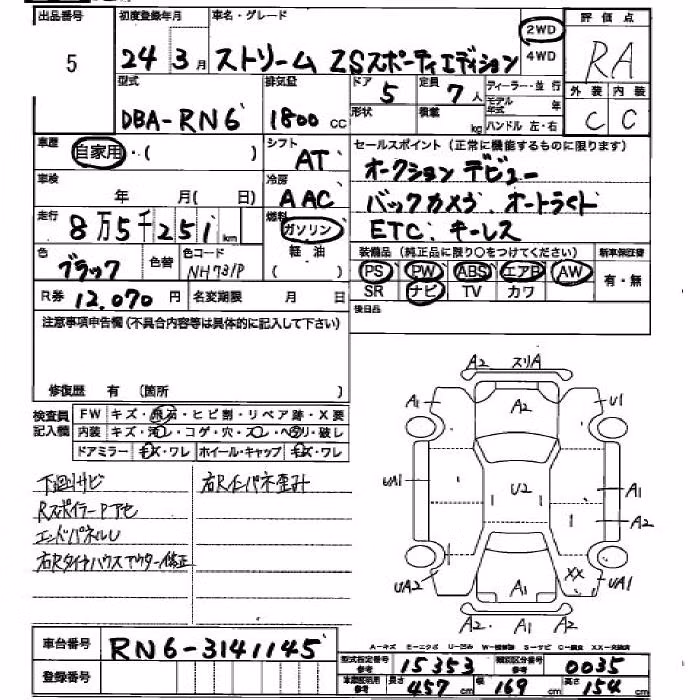 出品番号 初度登録年月 車名・グレード 評価点
5 24 3月 ストリーム ZSスポーティエディション 2WD 4WD RA
型式 排気量 ドア 定員 ディーラー・並行 外装 内装
DBA-RN6 1800 CC 5 7人 モデル年式 年 C C
形状 積載 kg ハンドル 左・右
車歴 自家用・( ) シフト AT セールスポイント(正常に機能するものに限ります)
オークションデビュー
車検 年 月( 日) 冷房 AAC バックカメラ、オートライト
走行 8万5千251km 燃料 ガソリン 軽油 ETC、キーレス
色 ブラック 色替 色コード NH731P 装備品(純正品に限り○をつけてください) 新車保証書
PS PW ABS エアB AW 有・無
R券 12,070円 名変期限 月 日 SR ナビ TV カワ
注意事項申告欄(不具合内容等は具体的に記入して下さい) 後日品
修復歴 有 (箇所 )
検査員記入欄 FW キズ・飛石・ヒビ割・リペア跡・X要
内装 キズ・汚レ・コゲ・穴・スレ・ヘタリ・破レ
ドアミラー キズ・ワレ ホイール・キャップ キズ・ワレ
下廻りサビ 右Rインパネ歪ミ
RスポイラーPアセ
エンドパネルU
右Rタイヤハウスアウター修正
A2 スリA
A1 A2 U1
UA1 U2 A1
A2
UA2 A1 XX UA1
A2 A1 A2
A-キズ E-エクボ U-凹み W-補修跡 S-サビ C-腐食 XX-交換済
車台番号 RN6-3141145 型式指定番号 参考 15353 類別区分番号 参考 0035
登録番号 車庫証明用 参考 長さ 457cm 幅 169cm 高さ 154cm